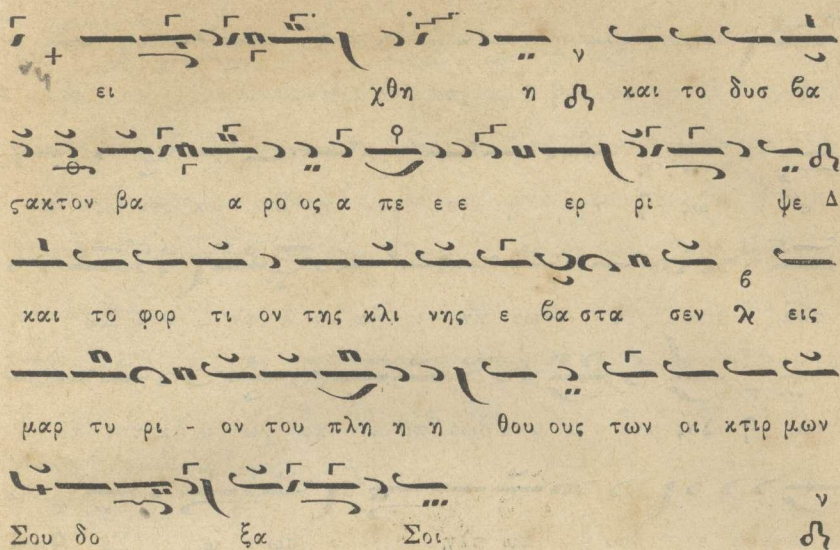 ει χθη η και το δυσ βα
ςακτον βα α ρο ος α πε ε ε ερ ρι ψε Δ
και το φορ τι ον της κλι νης ε βα στα σεν λ εις
μαρ τυ ρι - ον του πλη η η θου ους των οι κτιρ μων
Σου δο ξα Σοι